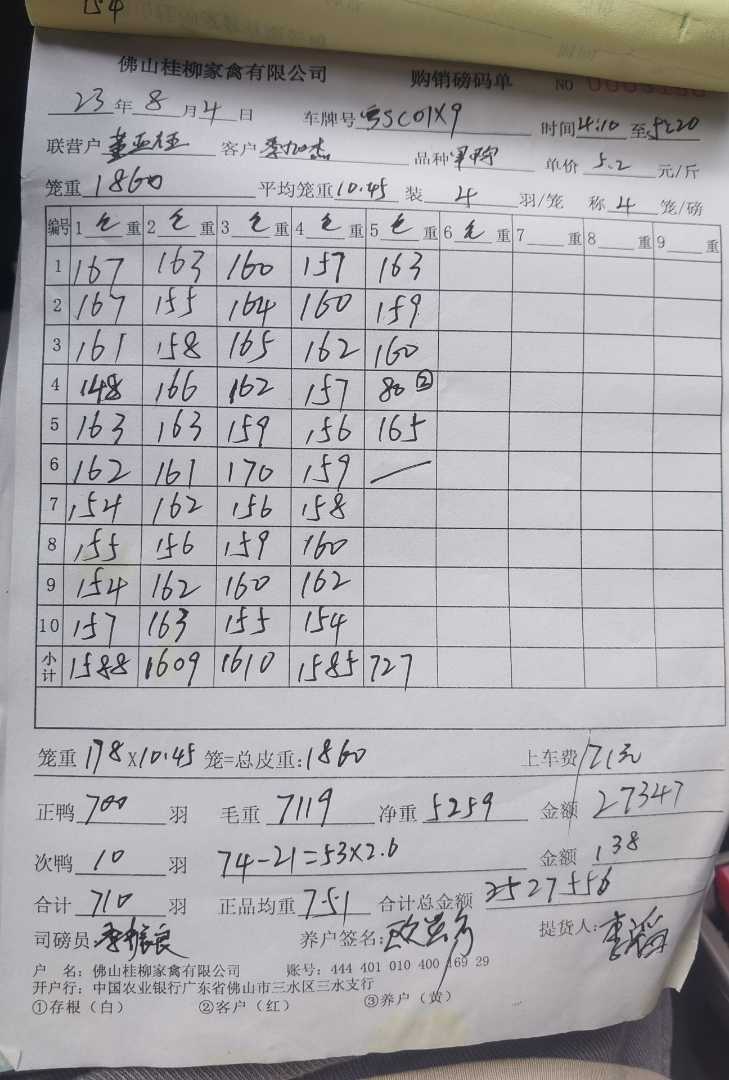 154
佛山桂柳家禽有限公司 购销磅码单 NO
23年8月4日 车牌号粤SC01X9 时间4:10至5:20
联营户 客户 品种 单价5.2元/斤
笼重1860 平均笼重10.45 装4羽/笼 称4笼/磅
编号 1仓重 2仓重 3仓重 4仓重 5仓重 6仓重 7重 8重 9重
1 167 163 160 157 163
2 167 155 164 160 159
3 161 158 165 162 160
4 148 166 162 157 80②
5 163 163 159 156 165
6 162 161 170 159 —
7 154 162 156 158
8 155 156 159 160
9 154 162 160 162
10 157 163 155 154
小计 1588 1609 1610 1585 727
笼重178×10.45笼=总皮重:1860 上车费71元
正鸭700羽 毛重7119 净重5259 金额27347
次鸭10羽 74-21=53×2.6 金额138
合计710羽 正品均重7.51 合计总金额27556
司磅员: 养户签名: 提货人:
户 名:佛山桂柳家禽有限公司 账号:444 401 010 400 169 29
开户行:中国农业银行广东省佛山市三水区三水支行
①存根(白) ②客户(红) ③养户(黄)